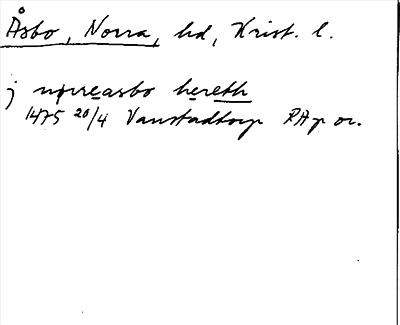 Åsbo, Norra, hd, Krist. l.
j nørreasbo hereth
1475 20/4 Vanstadtorp RAp or.